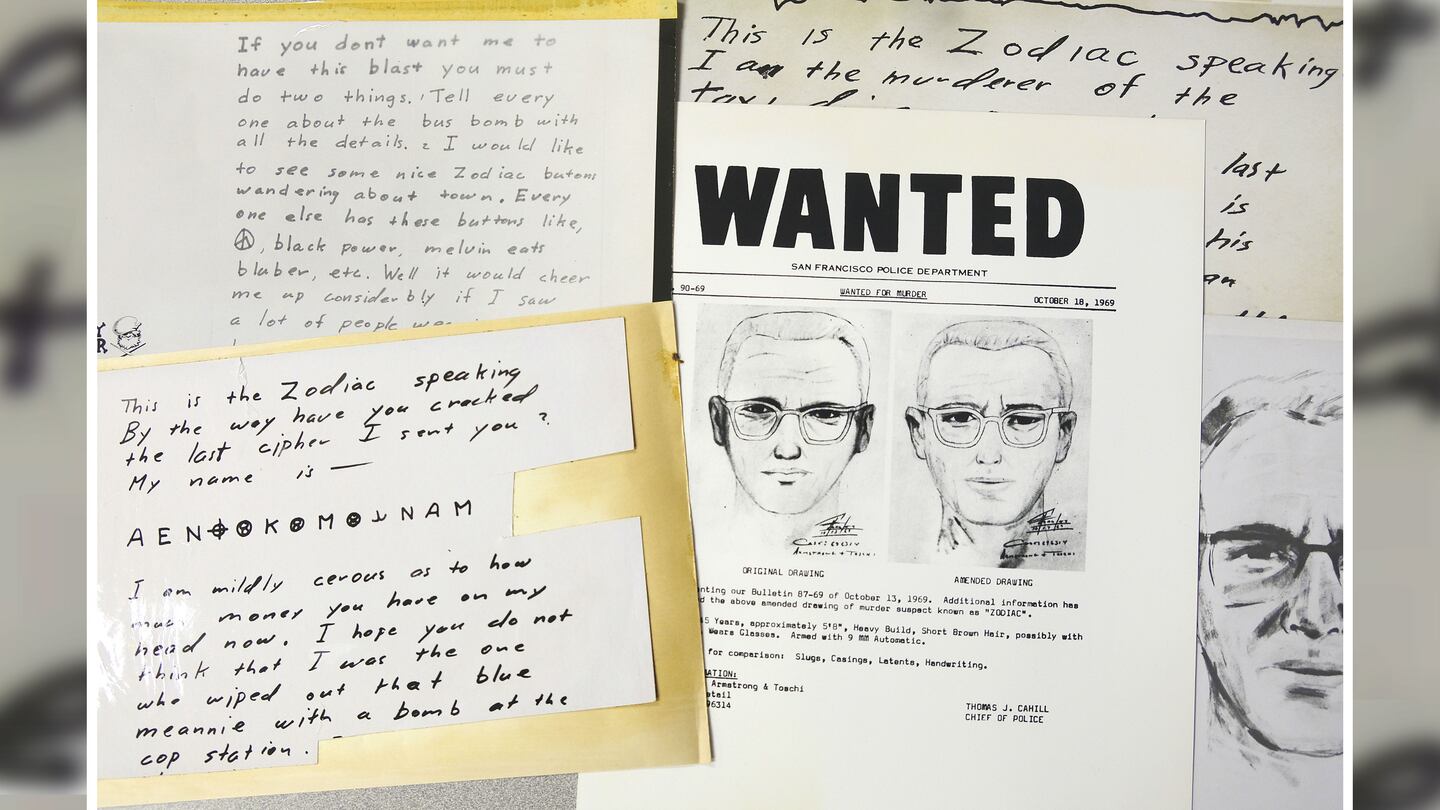 If you dont want me to
have this blast you must
do two things. Tell every
one about the bus bomb with
all the details. 2 I would like
to see some nice Zodiac butons
wandering about town. Every
one else has these buttons like,
, black power, melvin eats
bluber, etc. Well it would cheer
me up considerbly if I saw
a lot of people
This is the Zodiac speaking
By the way have you cracked
the last cipher I sent you ?
My name is —
A E N K M N A M
I am mildly cerous as to how
much money you have on my
head now. I hope you do not
think that I was the one
who wiped out that blue
meannie with a bomb at the
cop station.
This is the Zodiac speaking
I am the murderer of the
last
is
his
an
WANTED
SAN FRANCISCO POLICE DEPARTMENT
90-69 WANTED FOR MURDER OCTOBER 18, 1969
ORIGINAL DRAWING AMENDED DRAWING
our Bulletin 87-69 of October 13, 1969. Additional information has
the above amended drawing of murder suspect known as "ZODIAC".
Years, approximately 5'8", Heavy Build, Short Brown Hair, possibly with
Wears Glasses. Armed with 9 MM Automatic.
for comparison: Slugs, Casings, Latents, Handwriting.
Armstrong & Toschi
96314
THOMAS J. CAHILL
CHIEF OF POLICE